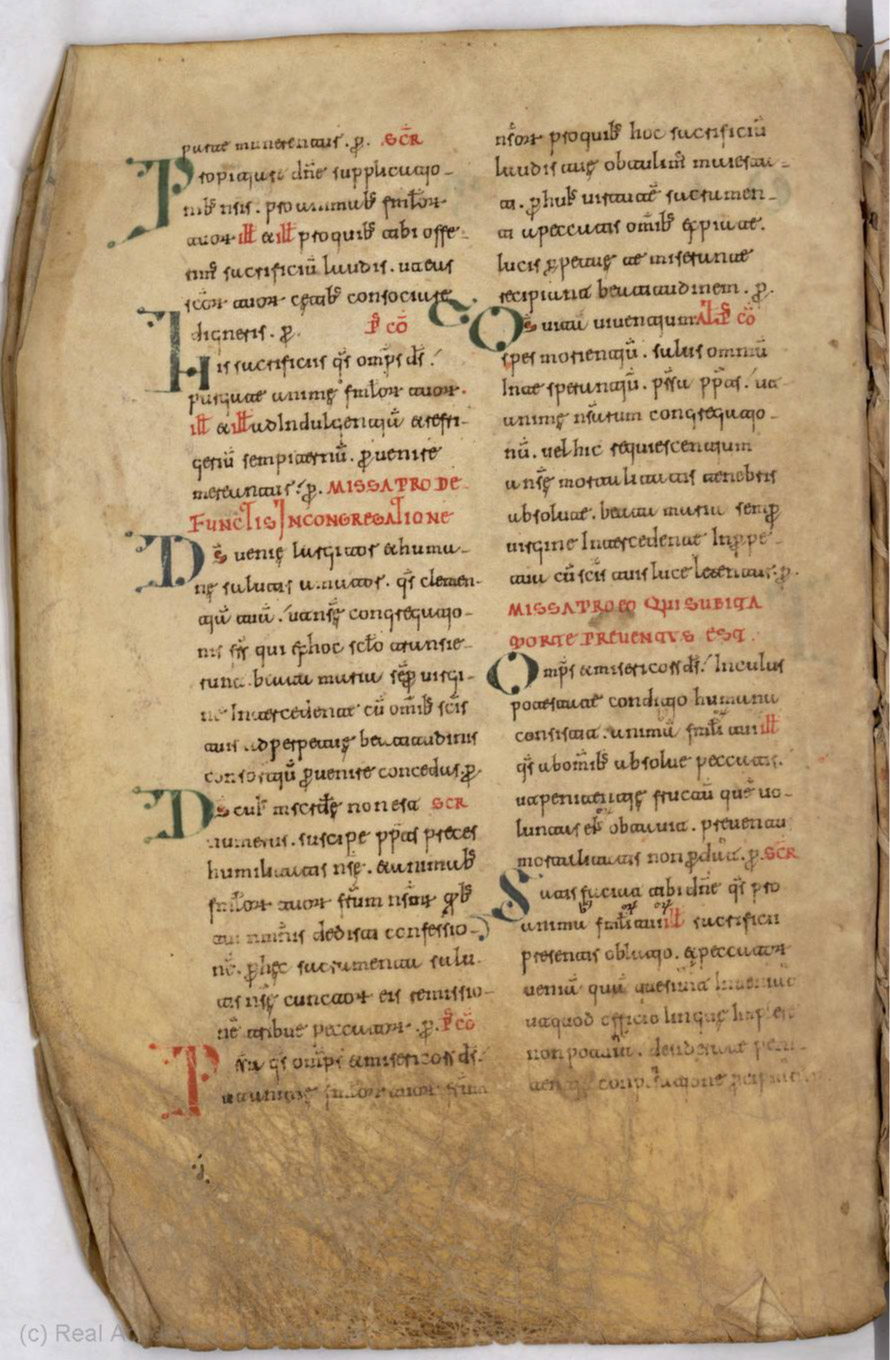 putae munerentur. p. SCR
Propitiare dñe supplicatio-
nib; nris. pro animab; famłor
tuor iłł & iłł pro quib; tibi offe-
rim sacrificiũ laudis. ut eas
scor tuor cętib; consociare
digneris. p. PꝰCÕ
His sacrificiis qs omps ds.
purgatae animę famlor tuor.
iłł & iłł ad Indulgentiũ & refri-
geriũ sempiternũ. puenire
mereantur. p. MISSA PRO DE
FUNCTIS IN CONGREGATIONE
Ds uenię largitor & huma-
nę salutis amator. qs clemen-
tiũ tuũ. ut nrę congregatio-
nis frs qui ex hoc sclo transie-
runt. beata maria sep uirgi-
ne Intercedente cũ omib; scis
tuis ad perpetuę beatitudinis
consortiũ puenire concedas. p
Ds cui; miscdę non est SCR
numerus. suscipe ppas preces
humilitatis nrę. & animab;
famlor tuor frum nror qb;
tui nominis dedisti confessio-
nẽ. p hęc sacramenta salu-
tis nrę cunctor eis remissio-
nẽ tribue peccator. p. PꝰCÕ
Psta qs omps & misericors ds.
ut animę famlor tuor frum
nror pro quib; hoc sacrificiũ
laudis tuę obtulim maiesta-
ti. p hui; uirtutẽ sacramen-
ti a peccatis omib; expiatę.
lucis ppetuę te miserante
recipiant beatitudinem. p.
Ds uita uiuentium ALIA P CÕ
spes morientiũ. salus omniũ
In te sperantiũ. psta ppas. ut
animę nrarum congregatio-
nũ. uel hic requiescentium
a nrę mortalitatis tenebris
absolutę. beata maria semp
uirgine Intercedente In ppe-
tua cũ scis tuis luce letentur. p.
MISSA PRO EO QUI SUBITA
MORTE PREUENTUS EST.
Omps & misericors ds. In cuius
potestate conditio humana
consistit. animã famli tui iłł
qs ab omib; absolue peccatis.
ut penitentię fructũ quẽ uo-
luntas ei; obtauit. preuenta
mortalitatis non pdat. p. SCR
Satis faciat tibi dñe qs pro
anima famli tui iłł sacrificii
presentis oblatio. & peccator
ueniã quã quesiuit Inueniat
ut quod officio linguę Implere
non potuit. desideratę peni-
tentię conpensatione percipiat